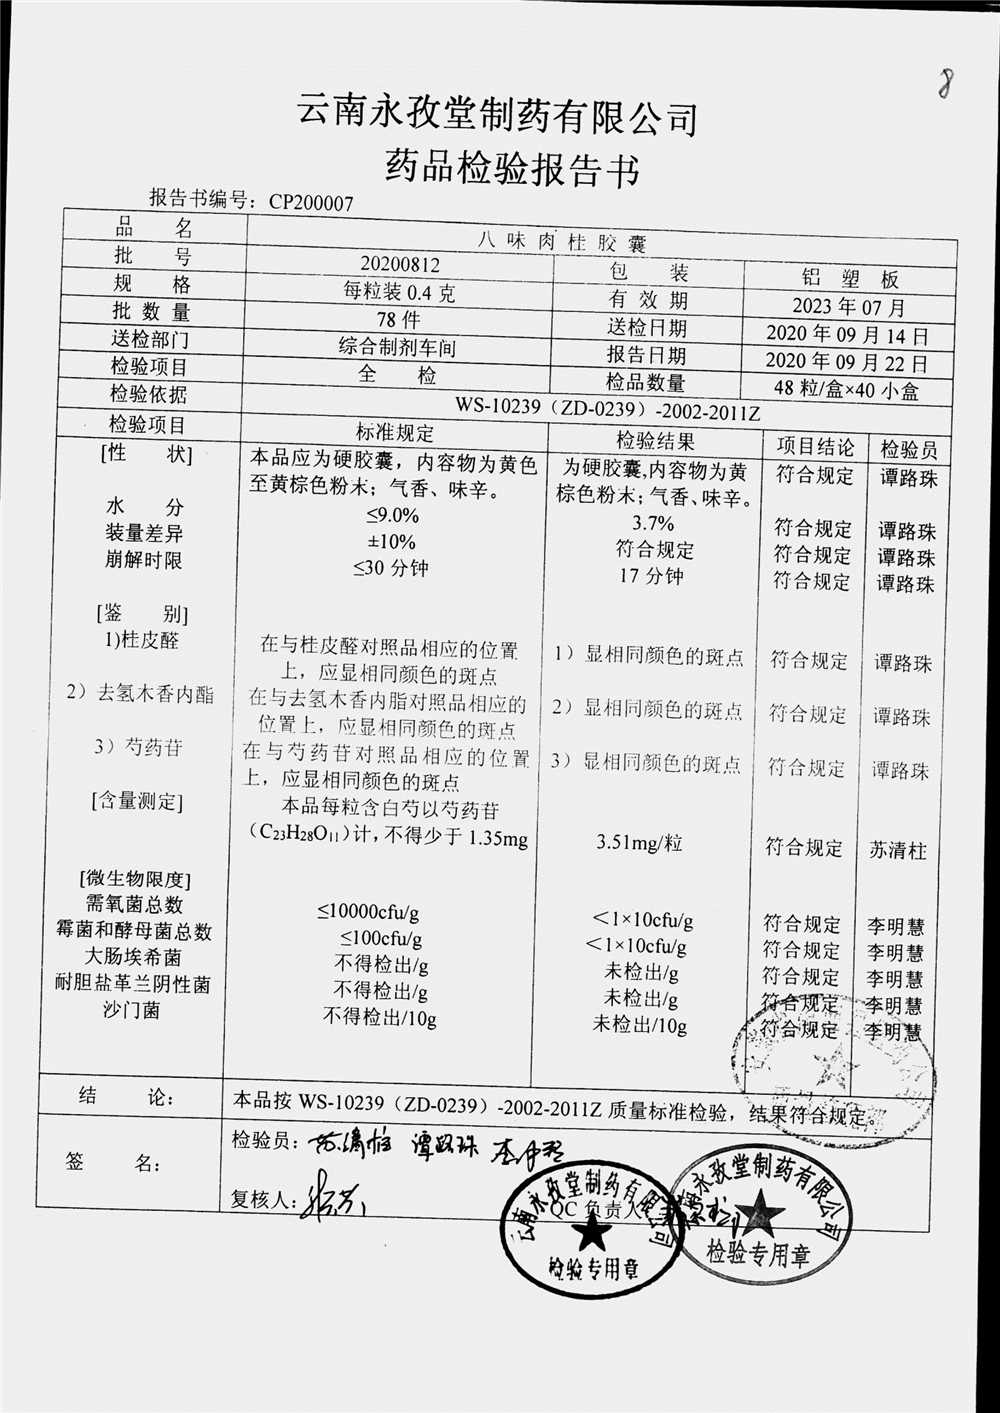 8
云南永孜堂制药有限公司
药品检验报告书
报告书编号：CP200007
品 名 八味肉桂胶囊
批 号 20200812 包 装 铝 塑 板
规 格 每粒装 0.4 克 有 效 期 2023 年 07 月
批 数 量 78 件 送检日期 2020 年 09 月 14 日
送检部门 综合制剂车间 报告日期 2020 年 09 月 22 日
检验项目 全 检 检品数量 48 粒/盒×40 小盒
检验依据 WS-10239（ZD-0239）-2002-2011Z
检验项目 标准规定 检验结果 项目结论 检验员
[性 状] 本品应为硬胶囊，内容物为黄色 为硬胶囊,内容物为黄 符合规定 谭路珠
至黄棕色粉末；气香、味辛。 棕色粉末；气香、味辛。
水 分 ≤9.0% 3.7% 符合规定 谭路珠
装量差异 ±10% 符合规定 符合规定 谭路珠
崩解时限 ≤30 分钟 17 分钟 符合规定 谭路珠
[鉴 别]
1)桂皮醛 在与桂皮醛对照品相应的位置 1）显相同颜色的斑点 符合规定 谭路珠
上，应显相同颜色的斑点
2）去氢木香内酯 在与去氢木香内脂对照品相应的 2）显相同颜色的斑点 符合规定 谭路珠
位置上，应显相同颜色的斑点
3）芍药苷 在与芍药苷对照品相应的位置 3）显相同颜色的斑点 符合规定 谭路珠
上，应显相同颜色的斑点
[含量测定] 本品每粒含白芍以芍药苷
（C23H28O11）计，不得少于 1.35mg 3.51mg/粒 符合规定 苏清柱
[微生物限度]
需氧菌总数 ≤10000cfu/g ＜1×10cfu/g 符合规定 李明慧
霉菌和酵母菌总数 ≤100cfu/g ＜1×10cfu/g 符合规定 李明慧
大肠埃希菌 不得检出/g 未检出/g 符合规定 李明慧
耐胆盐革兰阴性菌 不得检出/g 未检出/g 符合规定 李明慧
沙门菌 不得检出/10g 未检出/10g 符合规定 李明慧
结 论： 本品按 WS-10239（ZD-0239）-2002-2011Z 质量标准检验，结果符合规定。
签 名： 检验员： 苏清柱 谭路珠 李明慧
复核人： QC 负责人
云南永孜堂制药有限公司
检验专用章
永孜堂制药有限公司
检验专用章